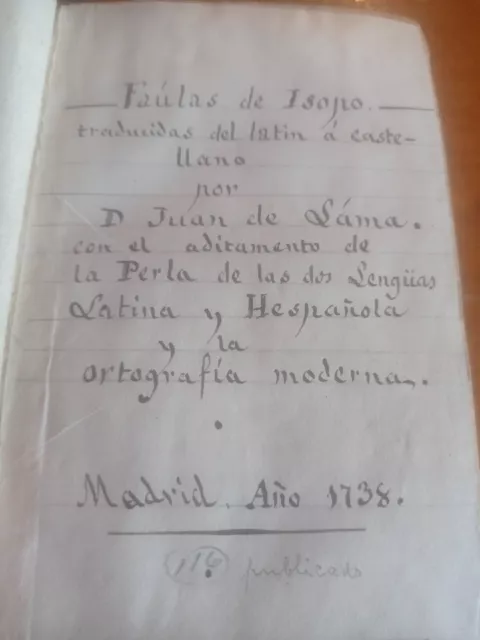 Faúlas de Isopo.
traducidas del latin á caste-
llano
por
D Juan de Láma.
con el aditamento de
la Perla de las dos Lengüas
Latina y Hespañola
y la
ortografía moderna.
Madrid. Año 1738.
116 publicado